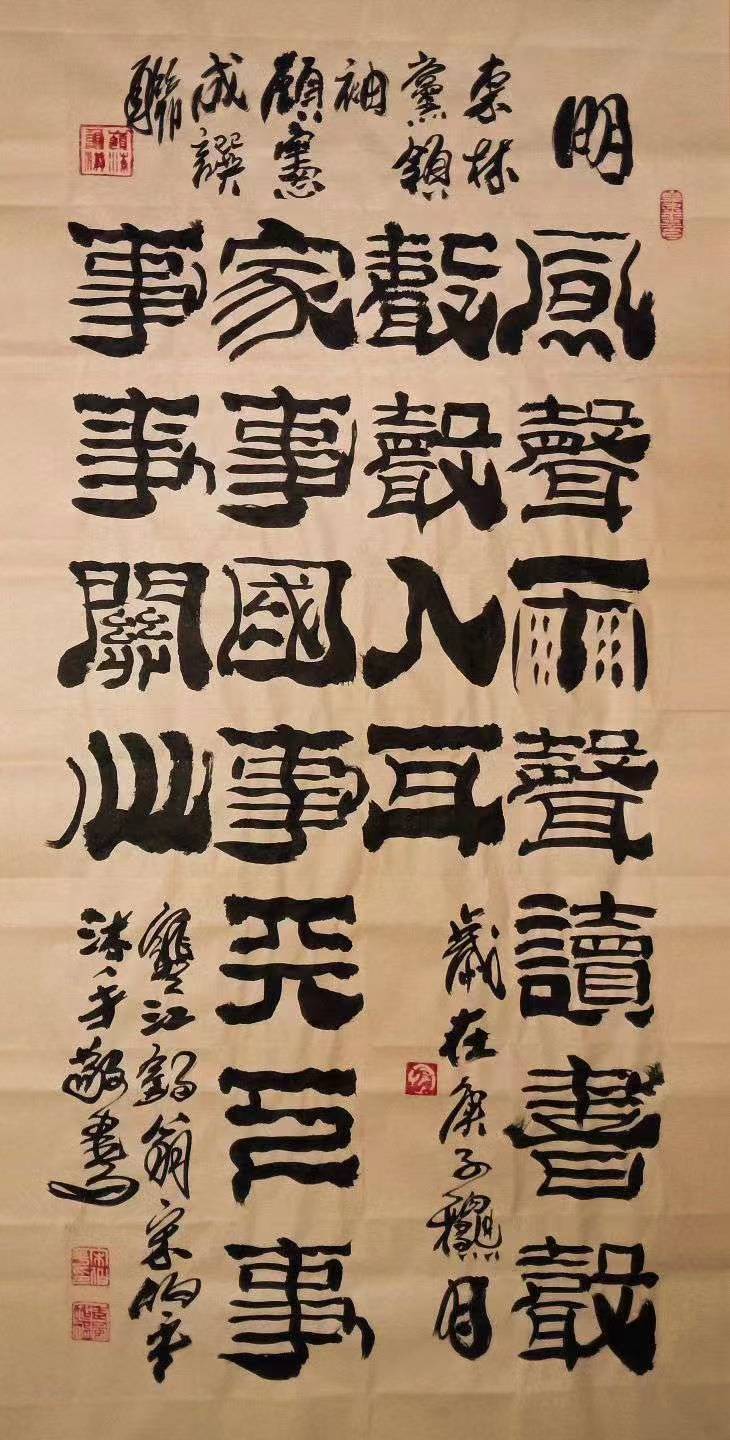 明
東林
黨領
袖
顧憲
成譔
聯
風聲雨聲讀書聲
聲聲入耳
歲在庚子龝月
家事國事天下事
事事關心
寒江翁宋
沐手敬書